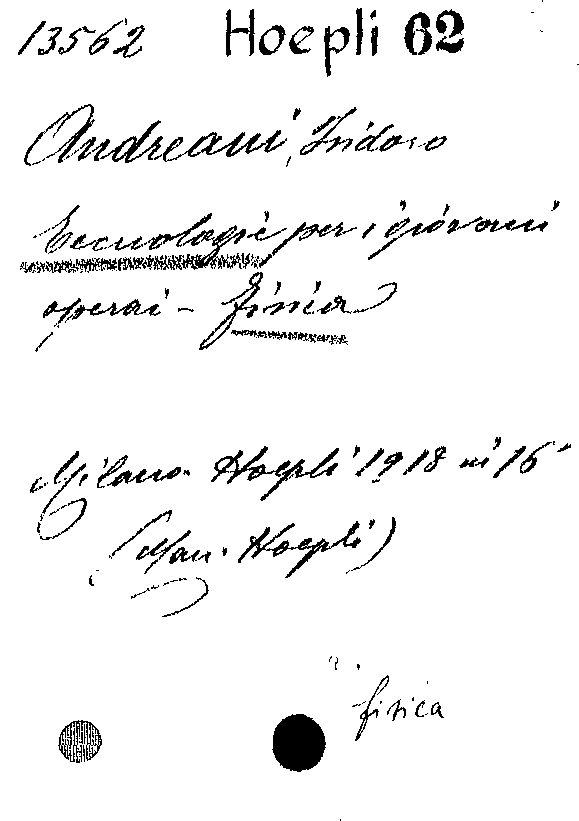 13562 Hoepli 62
Andreani, Isidoro
Tecnologie per i giovani
operai - Fisica
Milano. Hoepli 1918 in 16°
(Man. Hoepli)
fisica